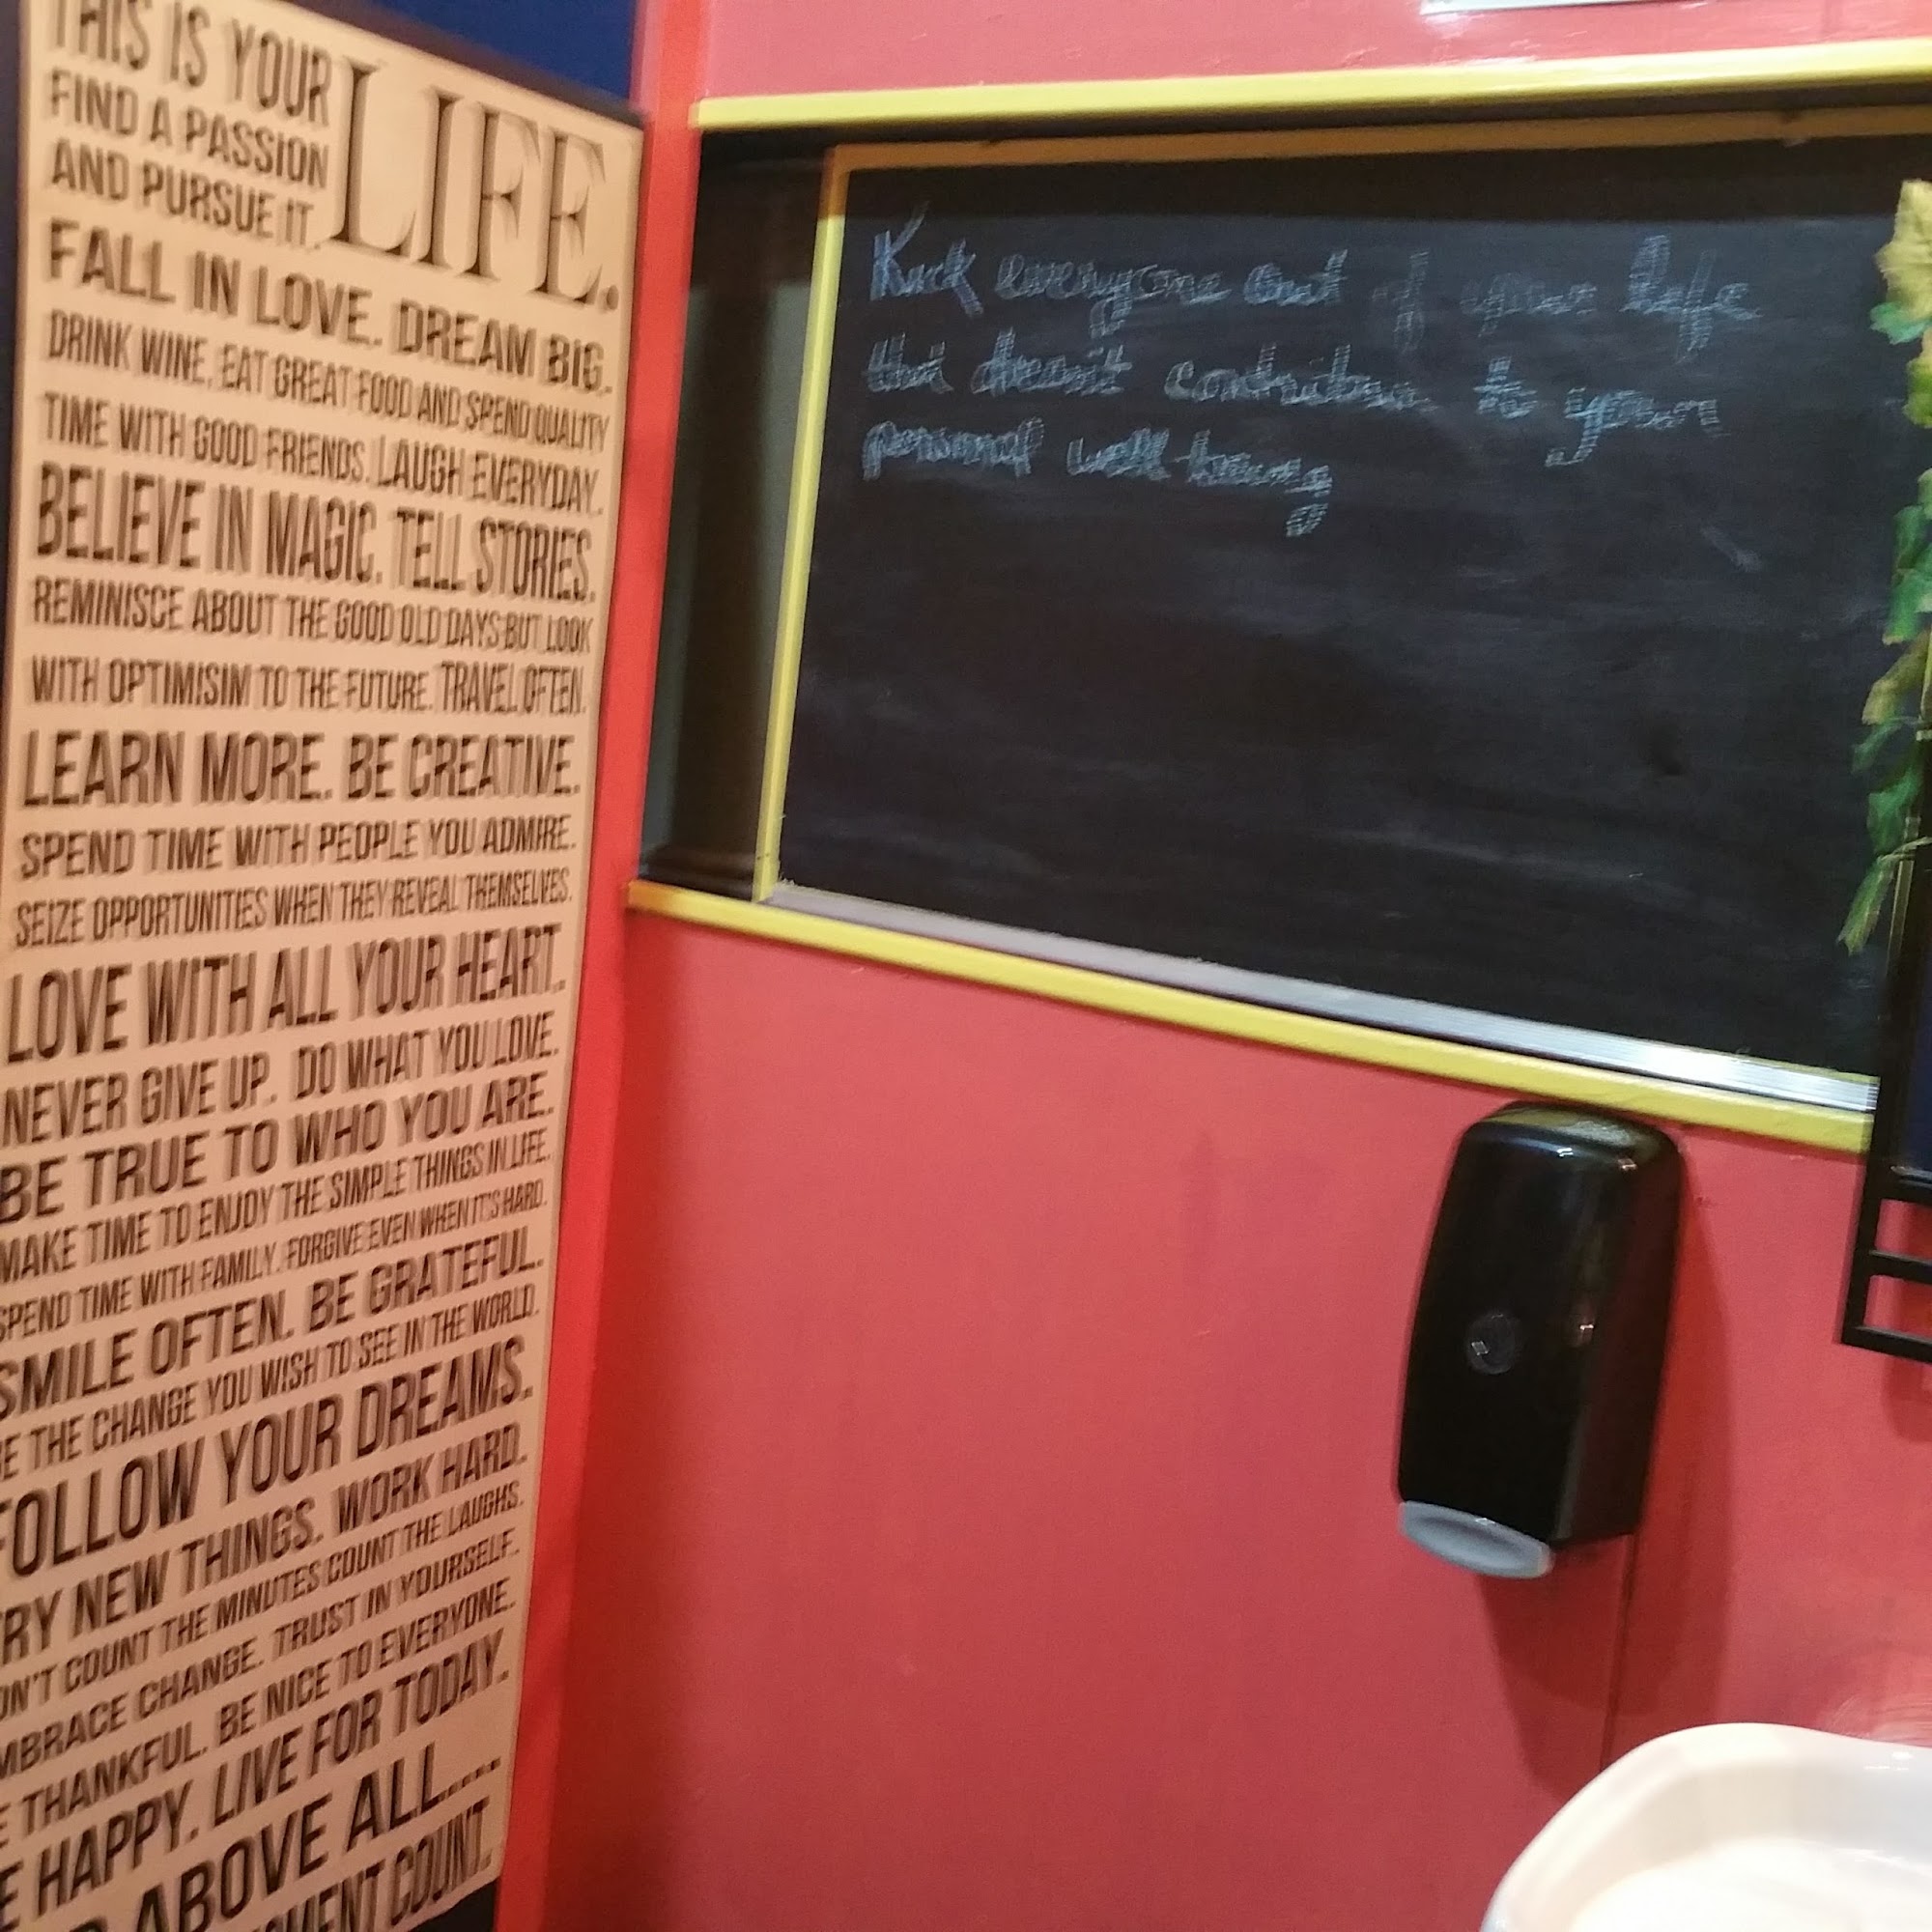 THIS IS YOUR LIFE.
FIND A PASSION
AND PURSUE IT.
FALL IN LOVE. DREAM BIG.
DRINK WINE, EAT GREAT FOOD AND SPEND QUALITY
TIME WITH GOOD FRIENDS. LAUGH EVERYDAY.
BELIEVE IN MAGIC. TELL STORIES.
REMINISCE ABOUT THE GOOD OLD DAYS BUT LOOK
WITH OPTIMISIM TO THE FUTURE. TRAVEL OFTEN.
LEARN MORE. BE CREATIVE.
SPEND TIME WITH PEOPLE YOU ADMIRE.
SEIZE OPPORTUNITIES WHEN THEY REVEAL THEMSELVES.
LOVE WITH ALL YOUR HEART.
NEVER GIVE UP. DO WHAT YOU LOVE.
BE TRUE TO WHO YOU ARE.
MAKE TIME TO ENJOY THE SIMPLE THINGS IN LIFE.
SPEND TIME WITH FAMILY. FORGIVE EVEN WHEN IT'S HARD.
SMILE OFTEN. BE GRATEFUL.
BE THE CHANGE YOU WISH TO SEE IN THE WORLD.
FOLLOW YOUR DREAMS.
TRY NEW THINGS. WORK HARD.
ON'T COUNT THE MINUTES COUNT THE LAUGHS.
MBRACE CHANGE. TRUST IN YOURSELF.
E THANKFUL. BE NICE TO EVERYONE.
E HAPPY. LIVE FOR TODAY.
D ABOVE ALL....
MENT COUNT.
Kick everyone out of your life
that doesn't contribute to your
personal well being